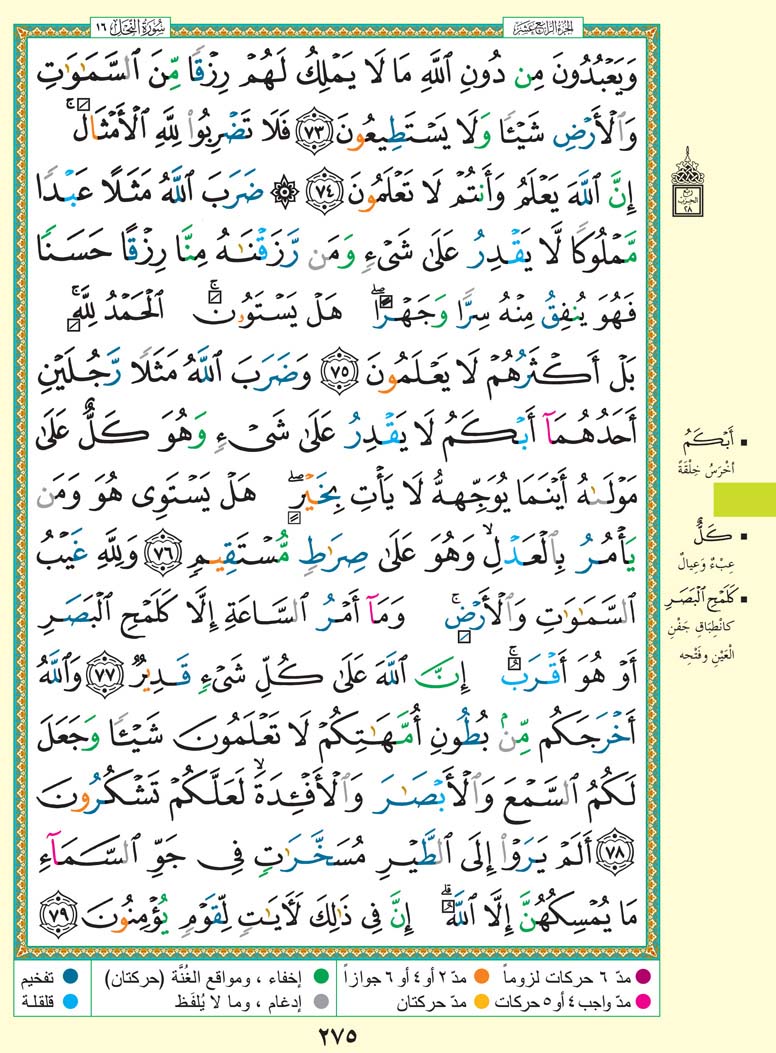 سُورَةُ النَّحْلِ ١٦
الجُزْءُ الرَّابِعَ عَشَرَ
وَيَعْبُدُونَ مِن دُونِ ٱللَّهِ مَا لَا يَمْلِكُ لَهُمْ رِزْقًا مِّنَ ٱلسَّمَٰوَٰتِ
وَٱلْأَرْضِ شَيْـًٔا وَلَا يَسْتَطِيعُونَ ﴿٧٣﴾ فَلَا تَضْرِبُوا۟ لِلَّهِ ٱلْأَمْثَالَ ۚ
إِنَّ ٱللَّهَ يَعْلَمُ وَأَنتُمْ لَا تَعْلَمُونَ ﴿٧٤﴾ ۞ ضَرَبَ ٱللَّهُ مَثَلًا عَبْدًا
مَّمْلُوكًا لَّا يَقْدِرُ عَلَىٰ شَىْءٍ وَمَن رَّزَقْنَٰهُ مِنَّا رِزْقًا حَسَنًا
فَهُوَ يُنفِقُ مِنْهُ سِرًّا وَجَهْرًا ۖ هَلْ يَسْتَوُۥنَ ۚ ٱلْحَمْدُ لِلَّهِ ۚ
بَلْ أَكْثَرُهُمْ لَا يَعْلَمُونَ ﴿٧٥﴾ وَضَرَبَ ٱللَّهُ مَثَلًا رَّجُلَيْنِ
أَحَدُهُمَآ أَبْكَمُ لَا يَقْدِرُ عَلَىٰ شَىْءٍ وَهُوَ كَلٌّ عَلَىٰ
مَوْلَىٰهُ أَيْنَمَا يُوَجِّههُّ لَا يَأْتِ بِخَيْرٍ ۖ هَلْ يَسْتَوِى هُوَ وَمَن
يَأْمُرُ بِٱلْعَدْلِ ۙ وَهُوَ عَلَىٰ صِرَٰطٍ مُّسْتَقِيمٍ ﴿٧٦﴾ وَلِلَّهِ غَيْبُ
ٱلسَّمَٰوَٰتِ وَٱلْأَرْضِ ۚ وَمَآ أَمْرُ ٱلسَّاعَةِ إِلَّا كَلَمْحِ ٱلْبَصَرِ
أَوْ هُوَ أَقْرَبُ ۚ إِنَّ ٱللَّهَ عَلَىٰ كُلِّ شَىْءٍ قَدِيرٌ ﴿٧٧﴾ وَٱللَّهُ
أَخْرَجَكُم مِّنۢ بُطُونِ أُمَّهَٰتِكُمْ لَا تَعْلَمُونَ شَيْـًٔا وَجَعَلَ
لَكُمُ ٱلسَّمْعَ وَٱلْأَبْصَٰرَ وَٱلْأَفْـِٔدَةَ ۙ لَعَلَّكُمْ تَشْكُرُونَ
﴿٧٨﴾ أَلَمْ يَرَوْا۟ إِلَى ٱلطَّيْرِ مُسَخَّرَٰتٍ فِى جَوِّ ٱلسَّمَآءِ
مَا يُمْسِكُهُنَّ إِلَّا ٱللَّهُ ۗ إِنَّ فِى ذَٰلِكَ لَءَايَٰتٍ لِّقَوْمٍ يُؤْمِنُونَ ﴿٧٩﴾
رُبْع
الحِزْب
٢٨
▪ أَبْكَمُ
أخْرَسُ خِلْقَةً
▪ كَلٌّ
عِبْءٌ وَعِيالٌ
▪ كَلَمْحِ ٱلْبَصَرِ
كانْطِباقِ جَفْنِ
العَيْنِ وفَتْحِه
مدّ ٦ حركات لزوماً
مدّ ٢ أو ٤ أو ٦ جوازاً
إخفاء ، ومواقع الغُنَّة (حركتان)
تفخيم
مدّ واجب ٤ أو ٥ حركات
مدّ حركتان
إدغام ، وما لا يُلفَظ
قلقلة
٢٧٥